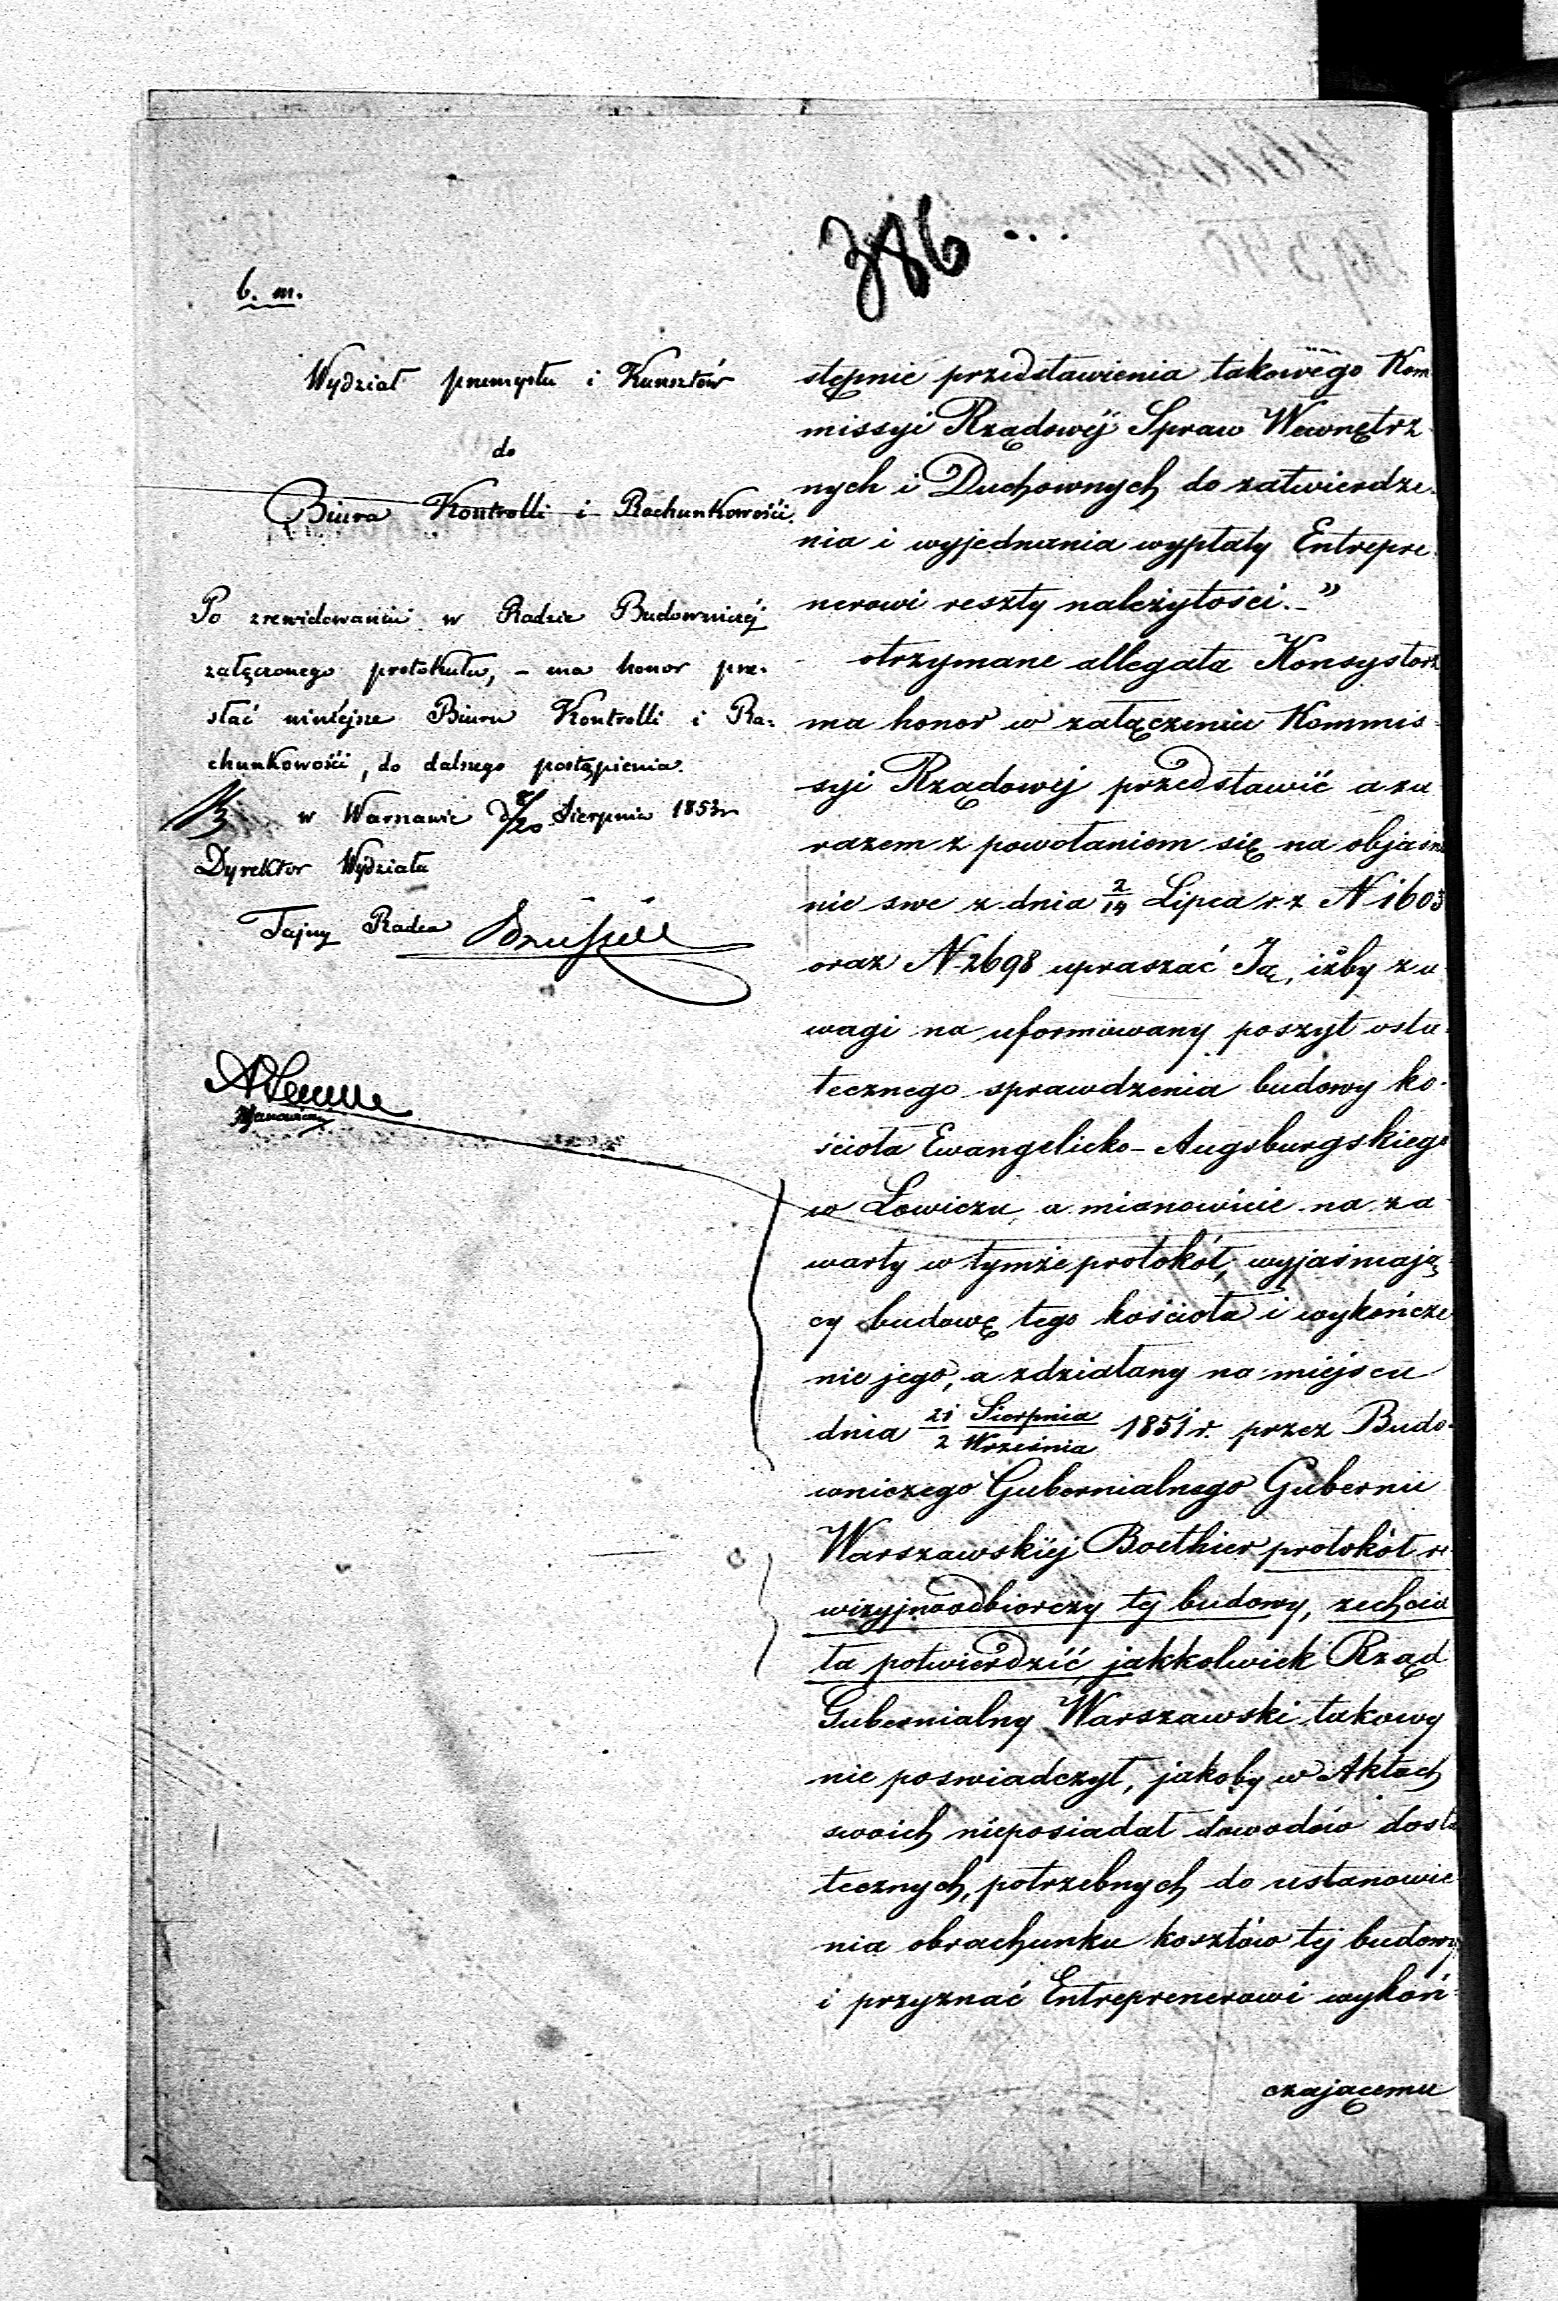 386
b. m.
Wydział przemysłu i Kunsztów
do
Biura Kontrolli i Rachunkowości.
Po zrewidowaniu w Radzie Budowniczéj
załączonego protokułu, – ma honor prze-
słać niniejsze Biuru Kontrolli i Ra-
chunkowości, do dalszego postąpienia.
w Warszawie d 8/20 Sierpnia 1853 r
Dyrektor Wydziału
Tajny Radca
stępnie przedstawienia takowego Kom-
missyi Rządowéj Spraw Wewnętrz-
nych i Duchownych do zatwierdze-
nia i wyjednania wypłaty Entrepre-
nerowi reszty należytości. –"
otrzymane allegata Konsystorz
ma honor w załączeniu Kommis-
syi Rządowej przedstawić a za
razem z powołaniem się na objaśnie
nie swe z dnia 2/14 Lipca r. z N 1603
oraz N 2698 upraszać Ją, iżby z u-
wagi na uformowany poszyt osta-
tecznego sprawdzenia budowy ko-
ścioła Ewangelicko-Augsburgskiego
w Łowiczu, a mianowicie na za-
warty w tymże protokół, wyjaśniają-
cy budowę tego kościoła i wykończe
nie jego, a zdziałany na miejscu
dnia 21 Sierpnia / 2 Września 1851 r. przez Budo-
wniczego Gubernialnego Gubernii
Warszawskiéj Boethier protokół re-
wizyjnoodbiorczy tej budowy, zechcia
ła potwierdzić, jakkolwiek Rząd
Gubernialny Warszawski takowy
nie poswiadczył, jakoby w Aktach
swoich nieposiadał dowodów dosta
tecznych, potrzebnych do ustanowie
nia obrachunku kosztów tej budowy
i przyznać Entreprenerowi wykoń-
czającemu